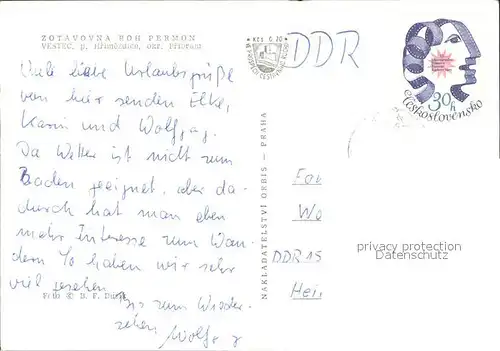 ZOTAVOVNA ROH PERMON
VESTEC, p. Hřiměždice, okr. Příbram
Viele liebe Urlaubsgrüße
von hier senden Elke,
Karin und Wolfgang.
Da Wetter ist nicht zum
Baden geeignet, aber da-
durch hat man eben
mehr Interesse zum Wan
dern. So haben wir sehr
viel gesehen.
Bis zum Wieder-
sehen
Wolfg
Foto © B. F.
NAKLADATELSTVÍ ORBIS — PRAHA
DDR
30h
Československo
Fa
We
DDR 15
Hei
privacy protection
Datenschutz